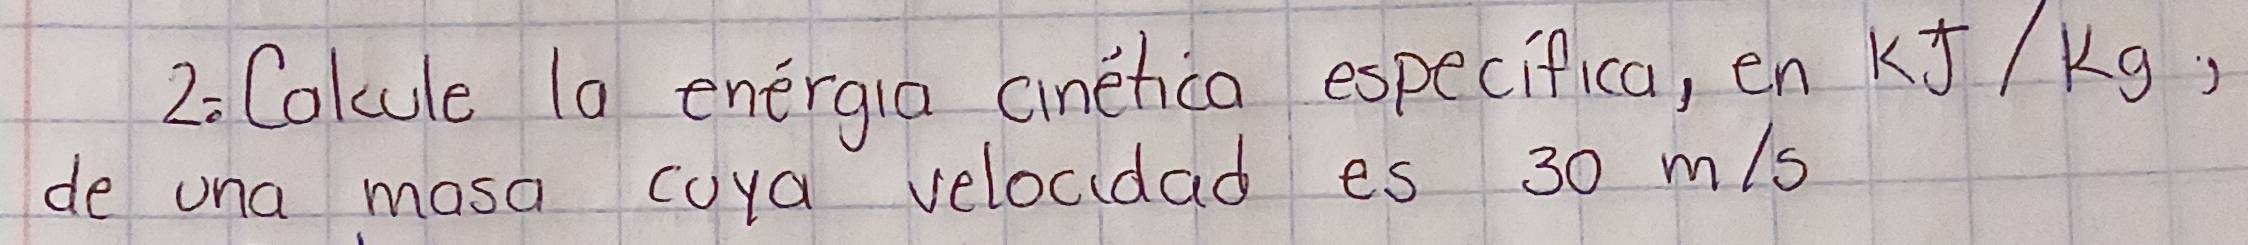 2. Calcule la enérgia cinética específica, en KJ/Kg,
de una masa cuya velocidad es 30 m/s